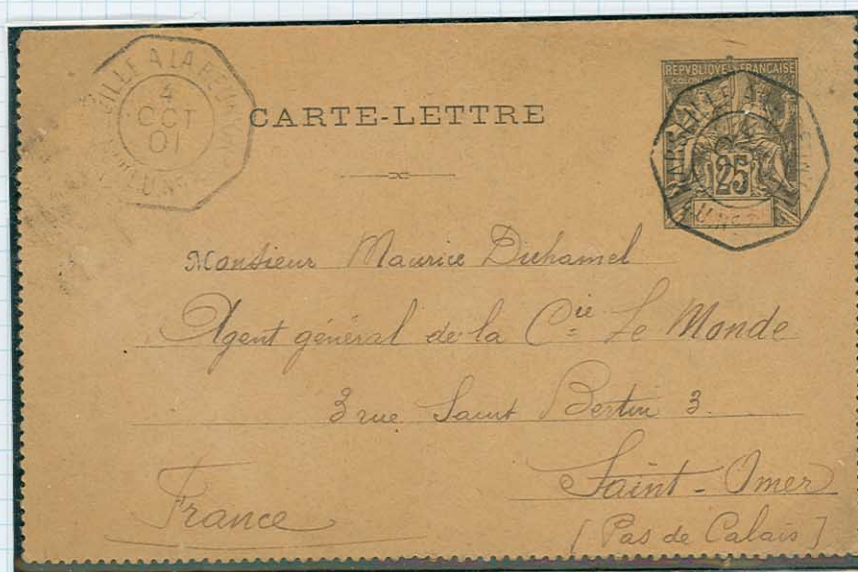 EILLE A LA REUNION
4
OCT
01
CARTE-LETTRE
REPVBLIQVE FRANÇAISE
COLON
MARSEILLE A LA REUNION
25
Monsieur Maurice Duhamel
Agent général de la Cie Le Monde
3 rue Saint Bertin 3.
Saint-Omer
France
[Pas de Calais]